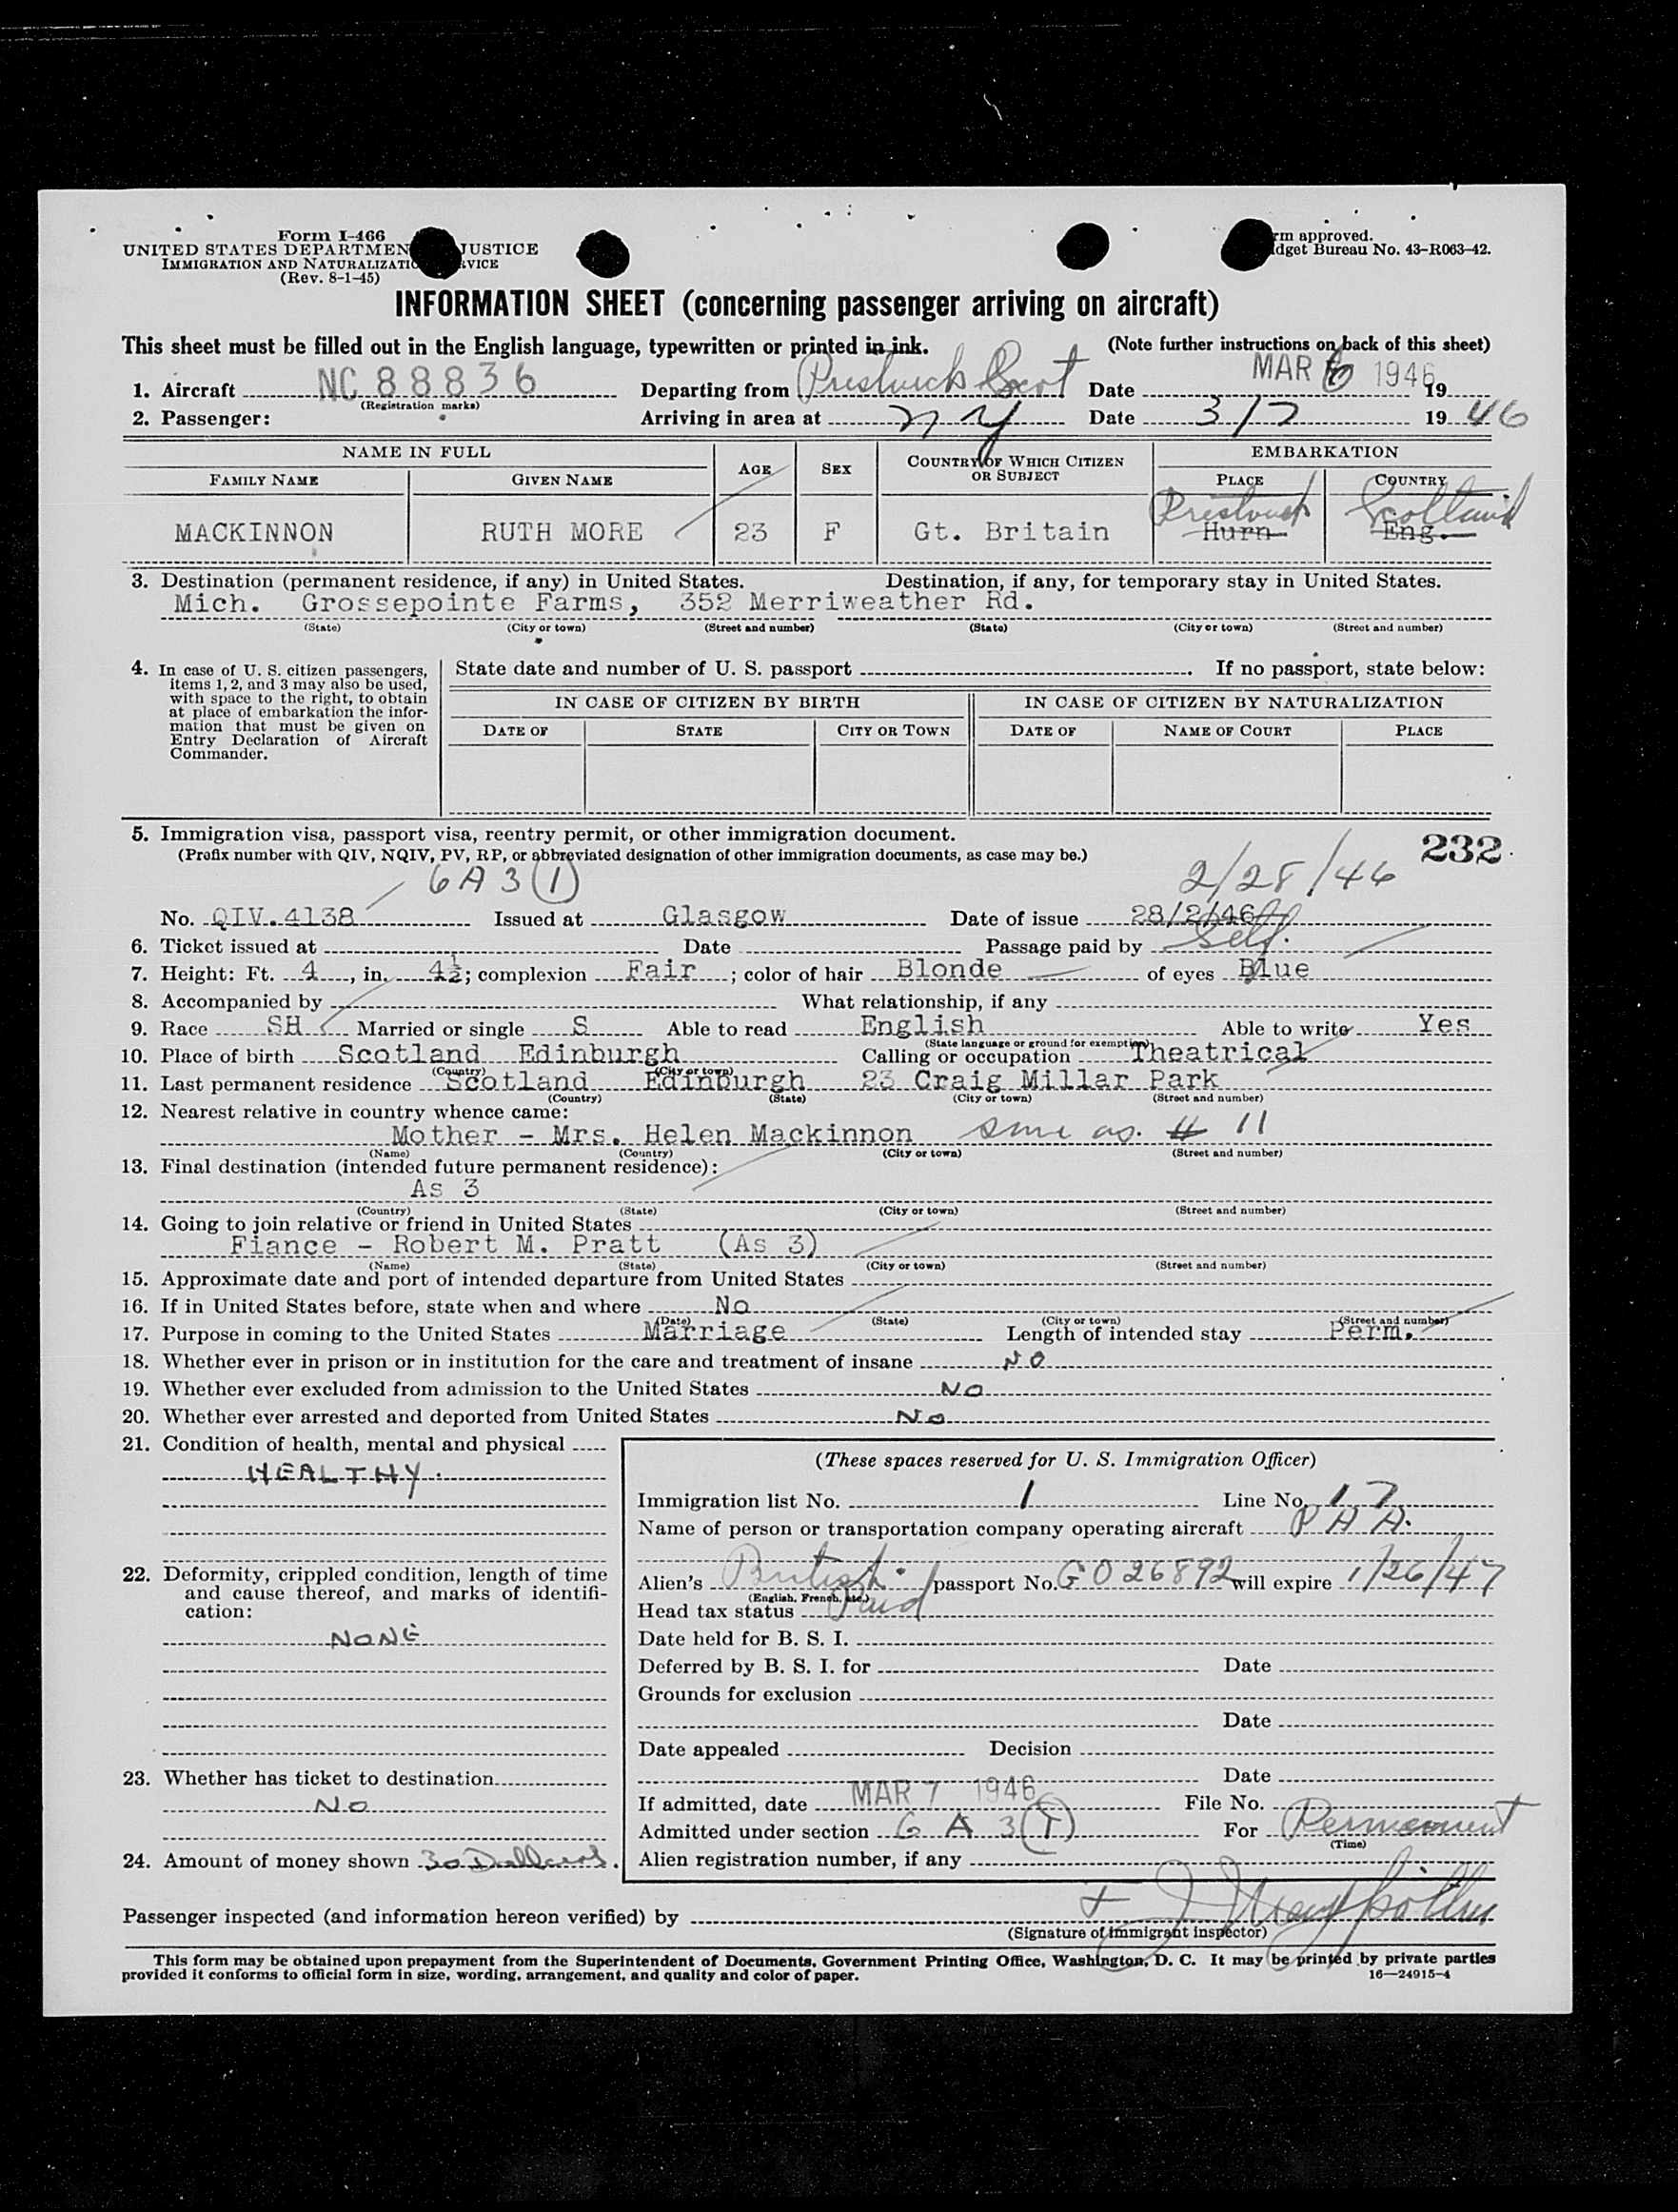 Form I-466
UNITED STATES DEPARTMEN JUSTICE
IMMIGRATION AND NATURALIZATIO RVICE
(Rev. 8-1-45)
rm approved.
dget Bureau No. 43-R063-42.
INFORMATION SHEET (concerning passenger arriving on aircraft)
This sheet must be filled out in the English language, typewritten or printed in ink. (Note further instructions on back of this sheet)
1. Aircraft NC 88836 Departing from Prestwick Scot Date MAR 6 1946 19
(Registration marks)
2. Passenger: Arriving in area at NY Date 3/7 19 46
NAME IN FULL AGE SEX COUNTRY OF WHICH CITIZEN OR SUBJECT EMBARKATION
FAMILY NAME GIVEN NAME PLACE COUNTRY
Prestwick Scotland
MACKINNON RUTH MORE 23 F Gt. Britain Hurn Eng.
3. Destination (permanent residence, if any) in United States. Destination, if any, for temporary stay in United States.
Mich. Grossepointe Farms, 352 Merriweather Rd.
(State) (City or town) (Street and number) (State) (City or town) (Street and number)
4. In case of U. S. citizen passengers, items 1, 2, and 3 may also be used, with space to the right, to obtain at place of embarkation the information that must be given on Entry Declaration of Aircraft Commander.
State date and number of U. S. passport . If no passport, state below:
IN CASE OF CITIZEN BY BIRTH IN CASE OF CITIZEN BY NATURALIZATION
DATE OF STATE CITY OR TOWN DATE OF NAME OF COURT PLACE
5. Immigration visa, passport visa, reentry permit, or other immigration document.
232
(Prefix number with QIV, NQIV, PV, RP, or abbreviated designation of other immigration documents, as case may be.)
6A3(1) 2/28/46
No. QIV.4138 Issued at Glasgow Date of issue 28/2/46
6. Ticket issued at Date Passage paid by Self.
7. Height: Ft. 4, in. 4½; complexion Fair; color of hair Blonde of eyes Blue
8. Accompanied by What relationship, if any
9. Race SH Married or single S Able to read English Able to write Yes
(State language or ground for exemption)
10. Place of birth Scotland Edinburgh Calling or occupation Theatrical
(Country) (City or town)
11. Last permanent residence Scotland Edinburgh 23 Craig Millar Park
(Country) (State) (City or town) (Street and number)
12. Nearest relative in country whence came:
Mother - Mrs. Helen Mackinnon same as # 11
(Name) (Country) (City or town) (Street and number)
13. Final destination (intended future permanent residence):
As 3
(Country) (State) (City or town) (Street and number)
14. Going to join relative or friend in United States
Fiance - Robert M. Pratt (As 3)
(Name) (State) (City or town) (Street and number)
15. Approximate date and port of intended departure from United States
16. If in United States before, state when and where No
(Date) (State) (City or town) (Street and number)
17. Purpose in coming to the United States Marriage Length of intended stay Perm.
18. Whether ever in prison or in institution for the care and treatment of insane NO
19. Whether ever excluded from admission to the United States NO
20. Whether ever arrested and deported from United States No
21. Condition of health, mental and physical
HEALTHY.
22. Deformity, crippled condition, length of time and cause thereof, and marks of identification:
NONE
23. Whether has ticket to destination
No
24. Amount of money shown 30 Dollars.
(These spaces reserved for U. S. Immigration Officer)
Immigration list No. 1 Line No. 17
Name of person or transportation company operating aircraft PAA.
Alien's British passport No. GO26892 will expire 1/26/47
(English, French, etc.)
Head tax status Paid
Date held for B. S. I.
Deferred by B. S. I. for Date
Grounds for exclusion
Date
Date appealed Decision
Date
If admitted, date MAR 7 1946 File No.
Admitted under section 6A3(1) For Permanent
(Time)
Alien registration number, if any
Passenger inspected (and information hereon verified) by
(Signature of immigrant inspector)
This form may be obtained upon prepayment from the Superintendent of Documents, Government Printing Office, Washington, D. C. It may be printed by private parties
provided it conforms to official form in size, wording, arrangement, and quality and color of paper. 16—24915-4